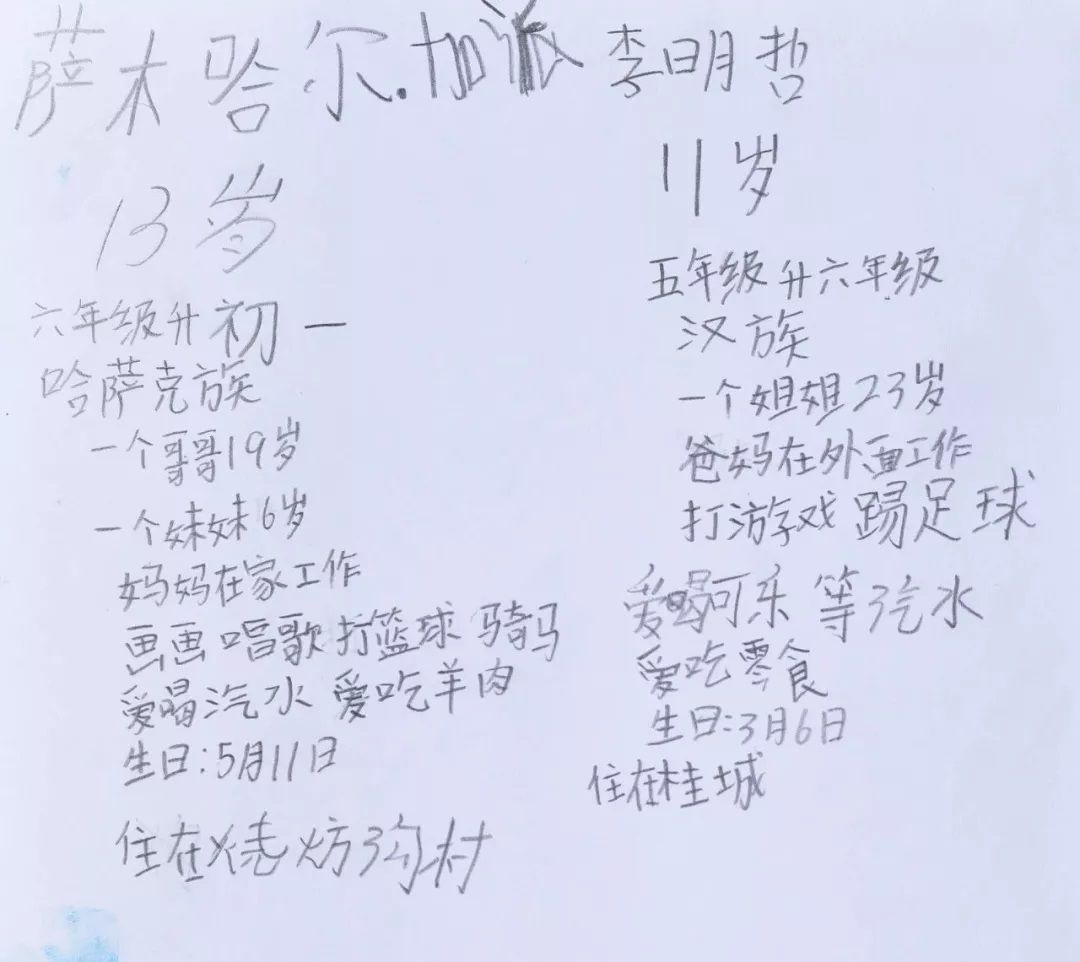 萨木哈尔.加派
13岁
六年级升初一
哈萨克族
一个哥哥19岁
一个妹妹6岁
妈妈在家工作
画画 唱歌 打篮球 骑马
爱喝汽水 爱吃羊肉
生日:5月11日
住在烧坊沟村
李明哲
11岁
五年级升六年级
汉族
一个姐姐23岁
爸妈在外面工作
打游戏 踢足球
爱喝可乐 等汽水
爱吃零食
生日:3月6日
住在桂城